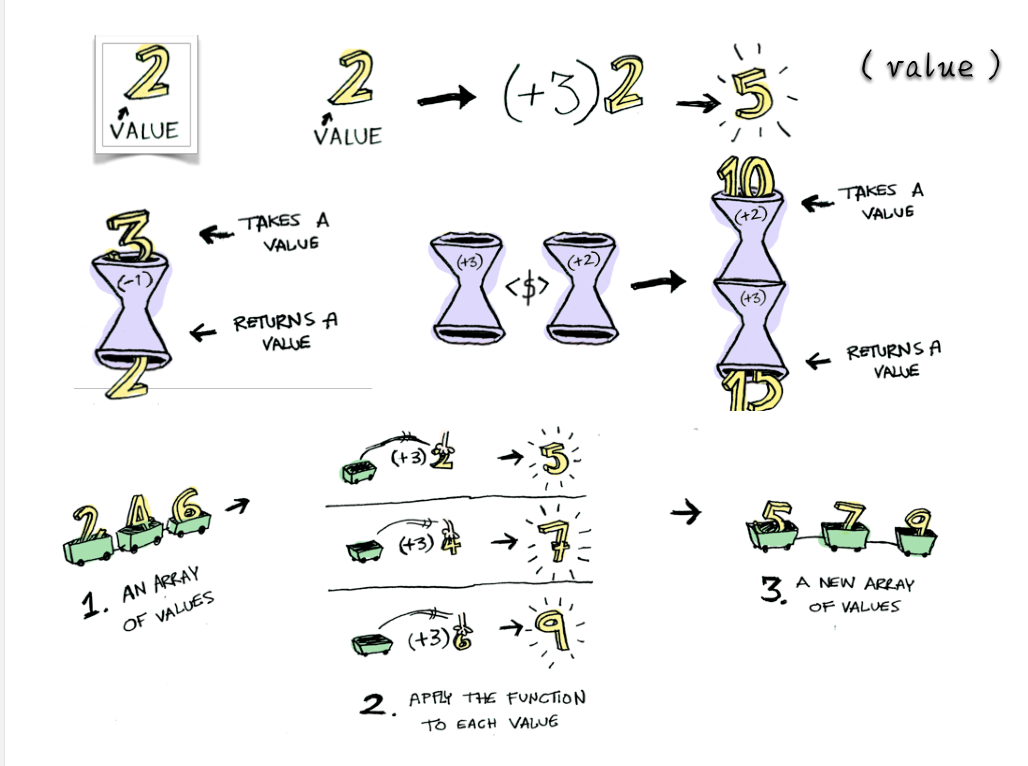 2
VALUE
2
VALUE
(+3) 2
5
( value )
3
(-1)
2
TAKES A
VALUE
RETURNS A
VALUE
(+3)
<$>
(+2)
10
(+2)
(+3)
15
TAKES A
VALUE
RETURNS A
VALUE
2 4 6
1. AN ARRAY
OF VALUES
(+3) 2
5
(+3) 4
7
(+3) 6
9
2. APPLY THE FUNCTION
TO EACH VALUE
5 7 9
3. A NEW ARRAY
OF VALUES